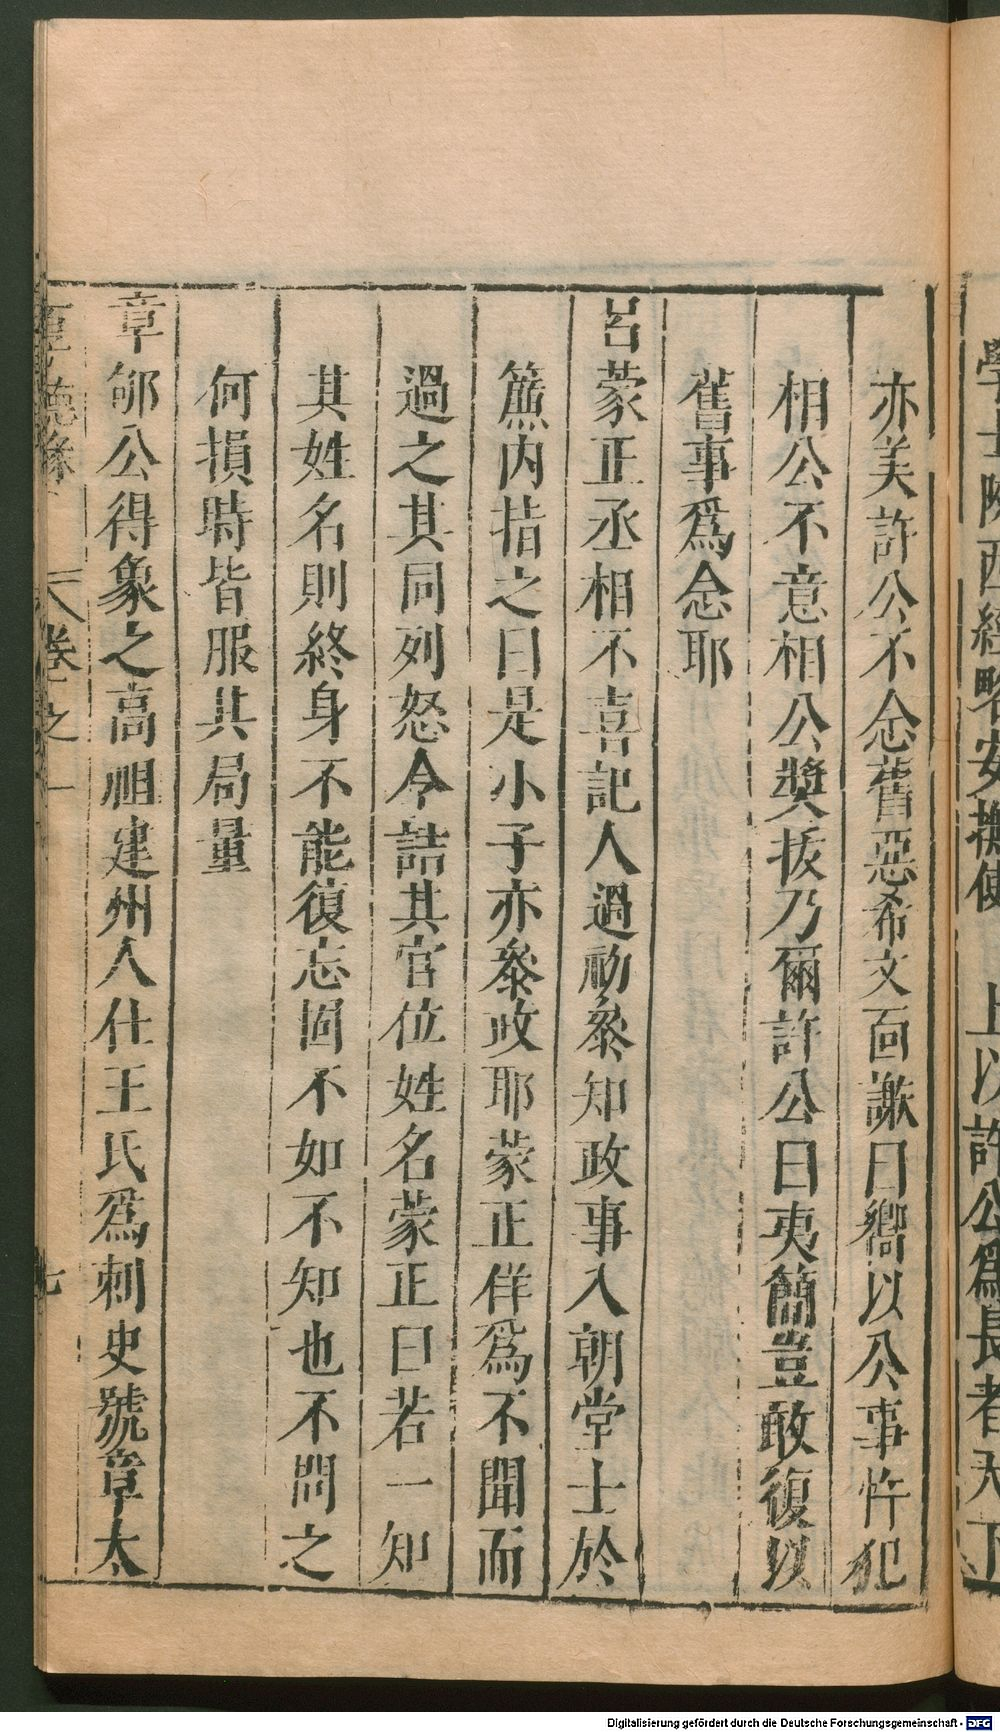 學士陝西經略安撫使 上以許公爲長者天下
亦美許公不念舊惡希文面謝曰嚮以公事忤犯
相公不意相公奬拔乃爾許公曰夷簡豈敢復以
舊事爲念耶
呂蒙正丞相不喜記人過初叅知政事入朝堂士於
簾内指之曰是小子亦叅政耶蒙正佯爲不聞而
過之其同列怒令詰其官位姓名蒙正曰若一知
其姓名則終身不能復忘固不如不知也不問之
何損時皆服其局量
章郇公得象之高祖建州人仕王氏爲刺史號章太
厚德錄 卷之一 七
Digitalisierung gefördert durch die Deutsche Forschungsgemeinschaft - DFG